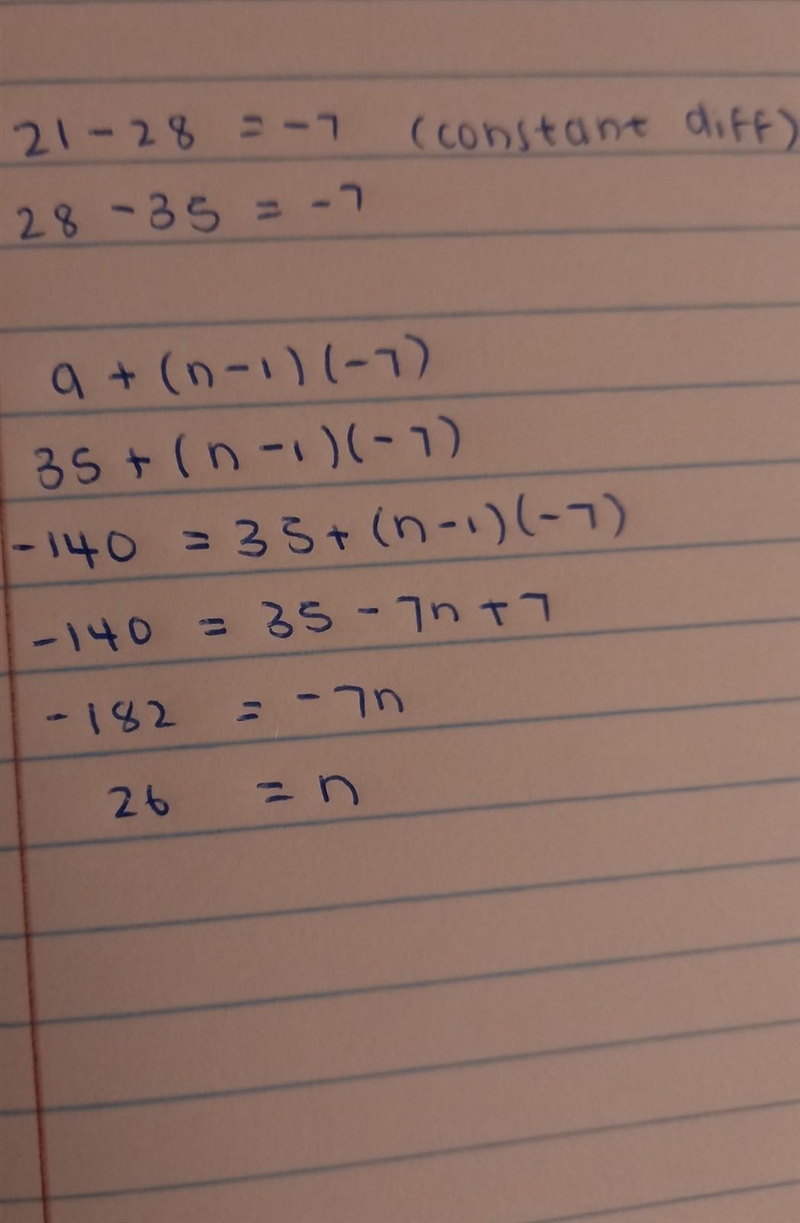 21 - 28 = -7 (constant diff)
28 - 35 = -7
a + (n-1)(-7)
35 + (n-1)(-7)
-140 = 35 + (n-1)(-7)
-140 = 35 - 7n + 7
-182 = -7n
26 = n